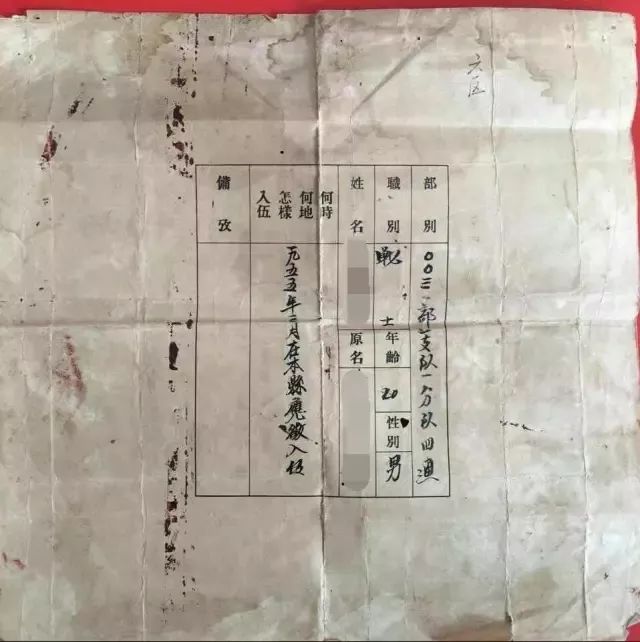 六区
部別 〇〇三一部一支队一分队四
職別 戰士 年齡 20 性別 男
姓名 原名
何時何地怎樣入伍 一九五五年二月在本縣應徵入伍
備攷